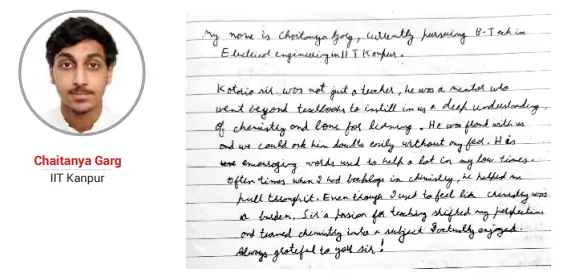 Chaitanya Garg
IIT Kanpur
My name is Chaitanya Garg, currently pursuing B-Tech in
Electrical engineering in IIT Kanpur.
Kotaria sir was not just a teacher, he was a mentor who
went beyond textbooks to instill in us a deep understanding,
of chemistry and love for learning. He was friend with us
and we could ask him doubts easily without any fear. His
encouraging words used to help a lot in my low times.
Often times when I had backlogs in chemistry, he helped me
pull through it. Even though I used to feel like chemistry was
a burden, Sir's passion for teaching shifted my perspective
and turned chemistry into a subject I actually enjoyed.
Always grateful to you sir!